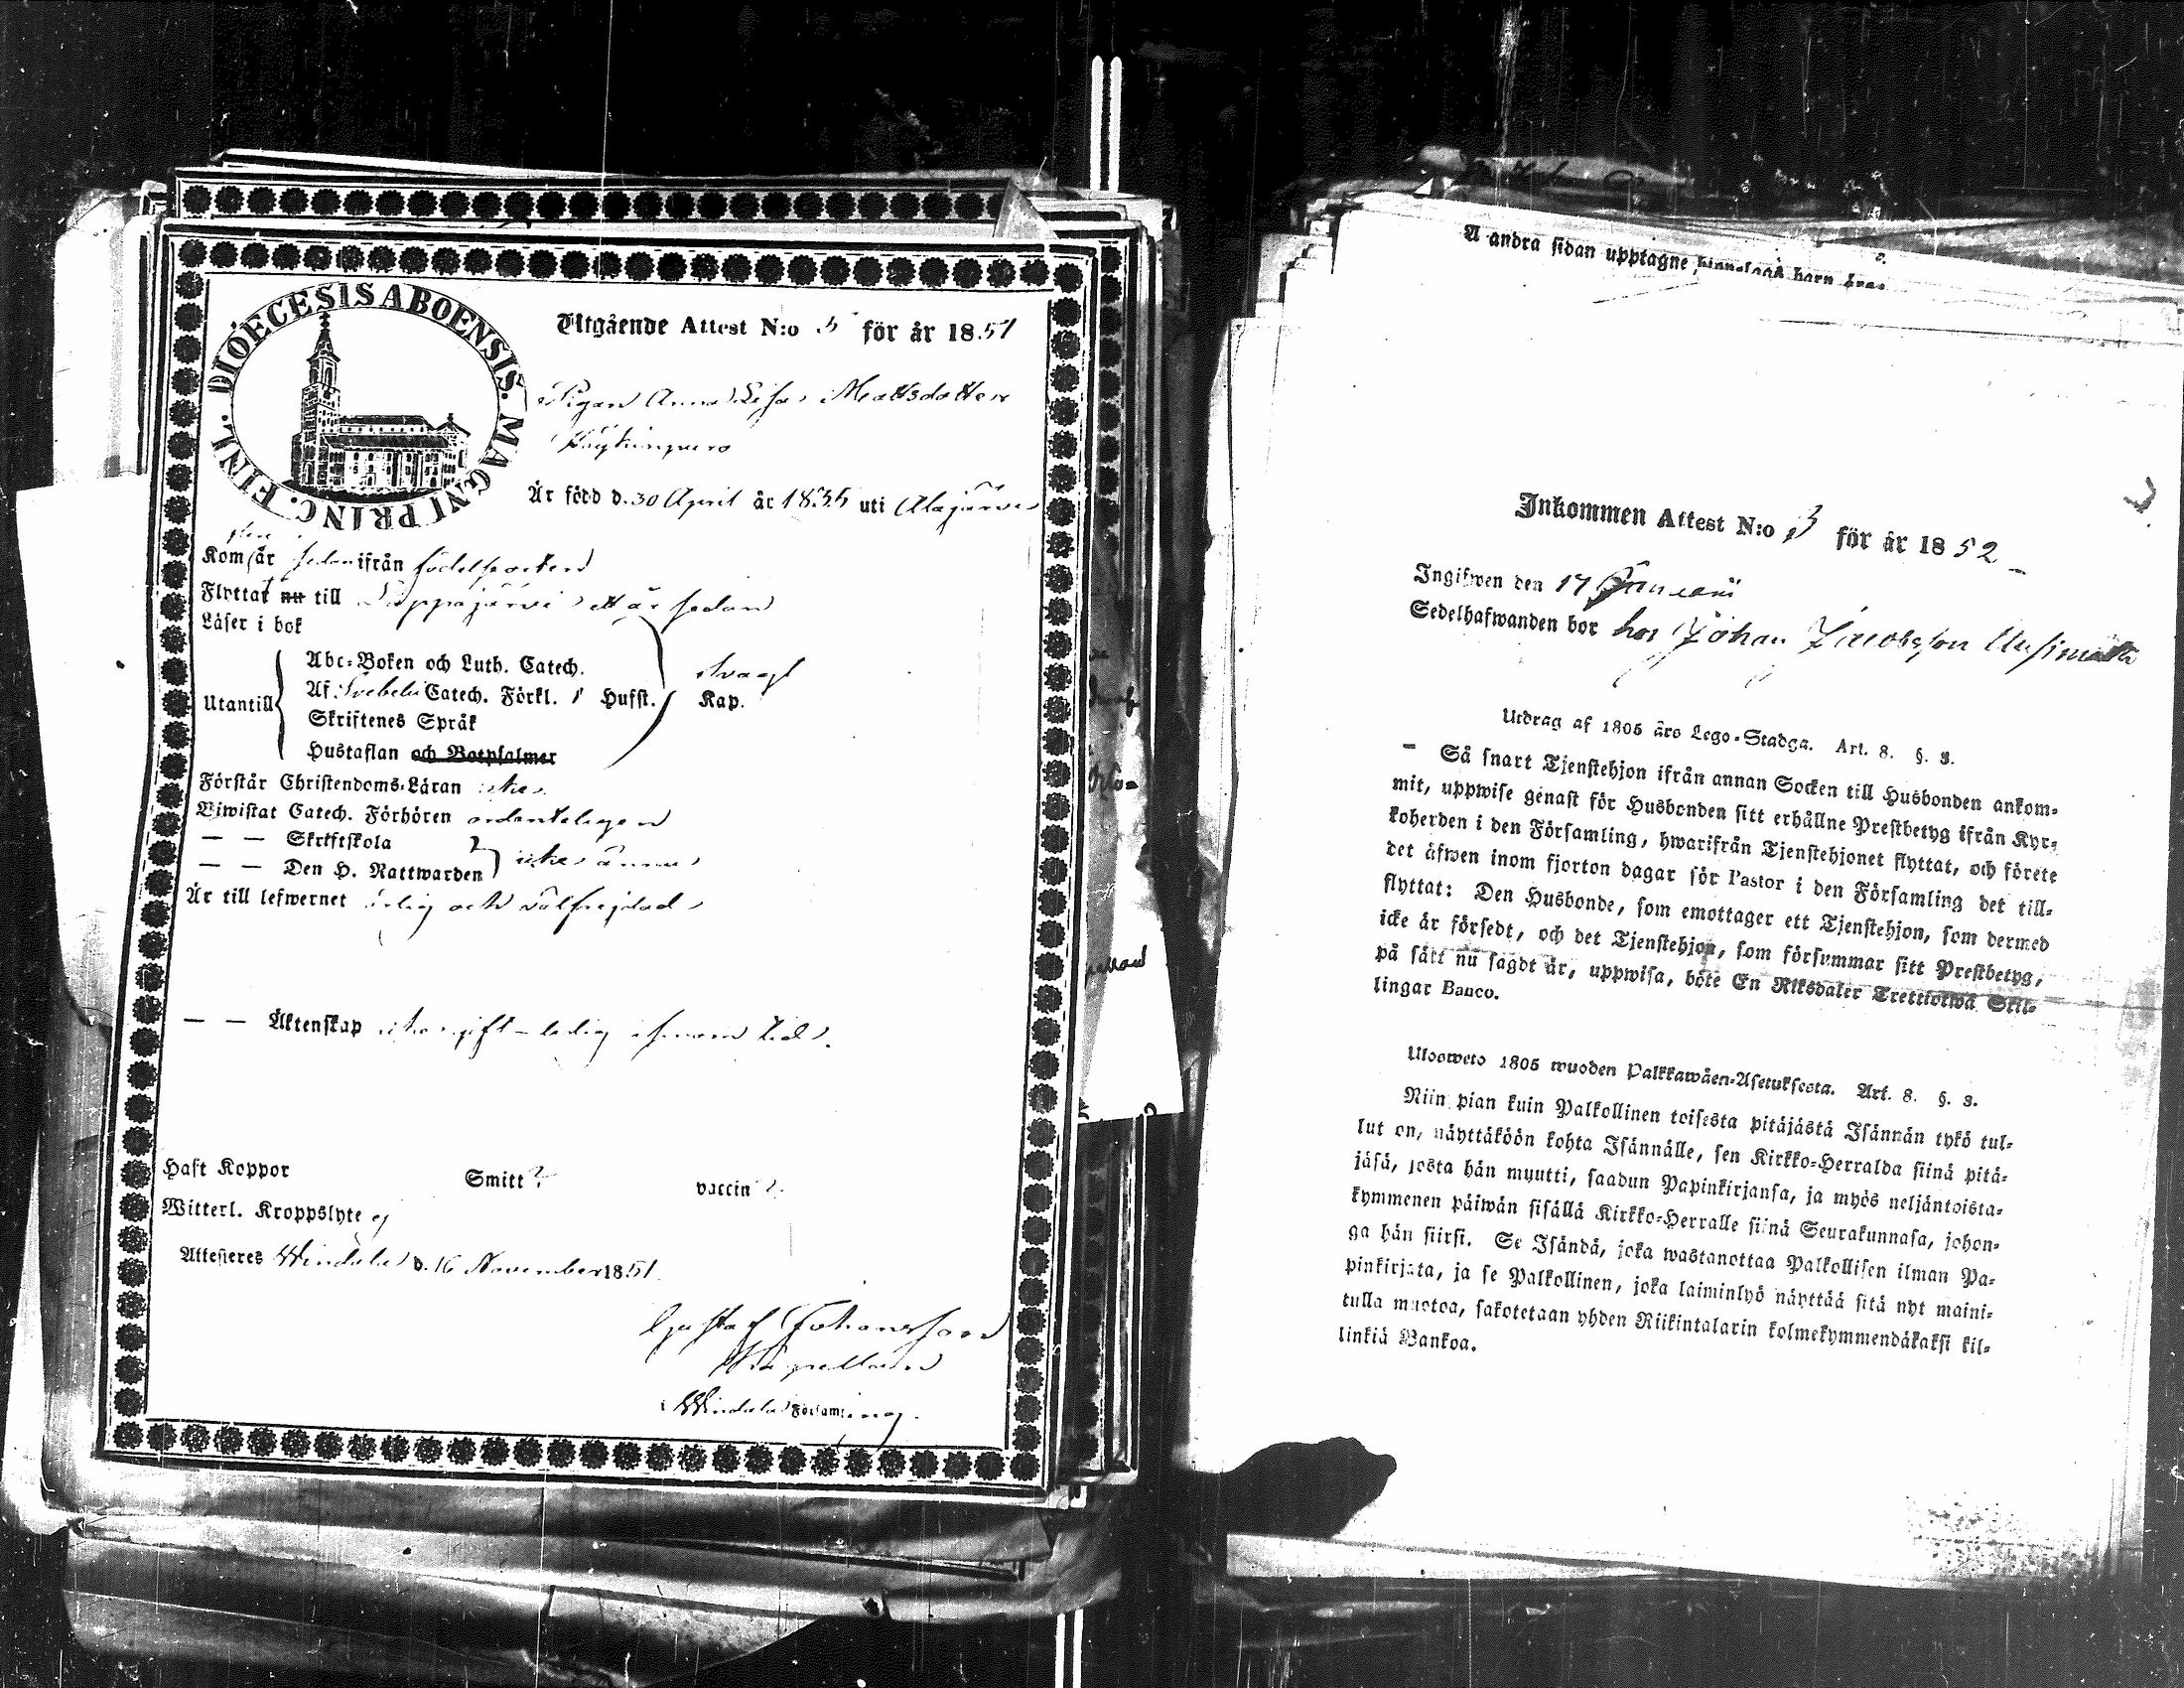 DIÓECESIS ABOENSIS. MAGNI PRINC. FINL.
Utgående Attest N:o 5 för år 1851
Pigan Anna Lisa Mattsdotter
Är född d. 30 April år 1835 uti Alajärvi
flere
Kom för år sedan ifrån födelseorten
Flyttat nu till Lappajärvi ett år sedan
Läser i bok
Utantill
Abc-Boken och Luth. Catech.
svagt
Af Svebelii Catech. Förkl. 1 Hufst. Kap.
Skriftenes Språk
Hustaflan och Botpsalmer
Förstår Christendoms-Läran icke
Biwistat Catech. Förhören ordenteligen
— — Skriftskola
— — Den H. Nattwarden icke ännu
Är till lefwernet ärlig och välfrejdad
— — Äktenskap icke gift – ledig i sinom tid.
Haft Koppor Smitt ? vaccin ?
Witterl. Kroppslyte ej
Attesteres Windala d. 16 November 1851.
Gustaf Johansson
Kapellan
Windala Församling.
A andra sidan upptagne barn
Inkommen Attest N:o 3 för år 1852
Ingifwen den 17 Januarii
Sedelhafwanden bor hos Johan Jacobsson
Utdrag af 1805 års Lego-Stadga. Art. 8. §. 3.
— Så snart Tjenstehjon ifrån annan Socken till Husbonden ankom-
mit, uppwise genast för Husbonden sitt erhållne Prestbetyg ifrån Kyr-
koherden i den Församling, hwarifrån Tjenstehjonet flyttat, och förete
det äfwen inom fjorton dagar för Pastor i den Församling det till-
flyttat: Den Husbonde, som emottager ett Tjenstehjon, som dermed
icke är försedt, och det Tjenstehjon, som försummar sitt Prestbetyg,
på sätt nu sagdt är, uppwisa, böte En Riksdaler Trettiotwå Skil-
lingar Banco.
Ulosweto 1805 wuoden Palkkawäen-Asetuksesta. Art. 8. §. 3.
Niin pian kuin Palkollinen toisesta pitäjästä Isännän tykö tul-
lut on, näyttäköön kohta Isännälle, sen Kirkko-Herralda siinä pitä-
jäsä, josta hän muutti, saadun Papinkirjansa, ja myös neljäntoista-
kymmenen päiwän sisällä Kirkko-Herralle siinä Seurakunnasa, johon-
ga hän siirsi. Se Isändä, joka wastanottaa Palkollisen ilman Pa-
pinkirjata, ja se Palkollinen, joka laiminlyö näyttää sitä nyt maini-
tulla muotoa, sakotetaan yhden Riikintalarin kolmekymmendäkaksi kil-
linkiä Bankoa.